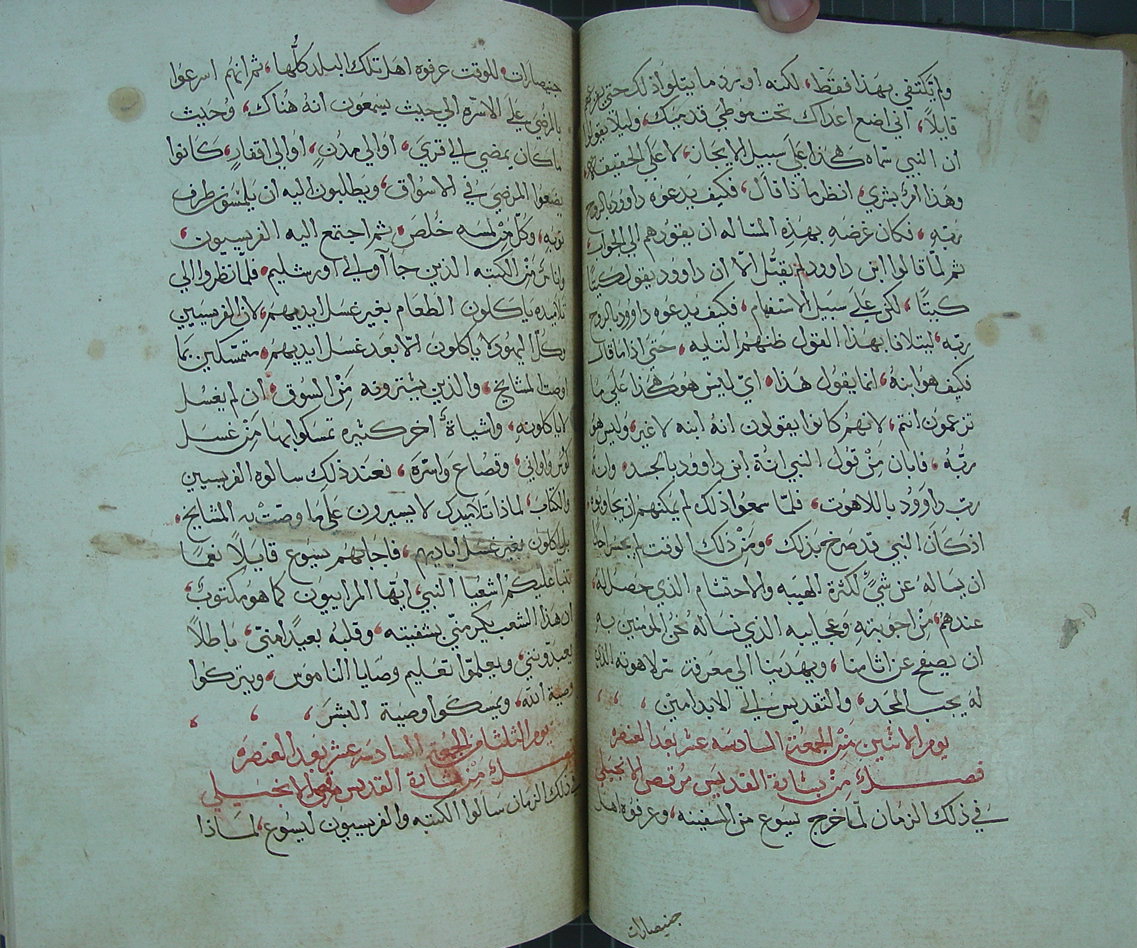 ولم يكتفي بهذا فقط، لكنه اورد ما يتلوا ذلك حتى
قايلاً، اني اضع اعداك تحت موطي قدميك، وليلا يقولوا
ان النبي سماه هكذا على سبيل الايجاز، لا على الحقيقة،
وهذا امر بشري، انظر ماذا قال، فكيف يدعوه داوود بالروح
ربه، فكان غرضه بهذه المساله ان يقودهم الي الجواب
ثم لما قالوا ابن داوود لم يقل لا ان داوود يقول كيتا
كيتا، لكن على سبيل الاستفهام، فكيف يدعوه داوود بالروح
ربه، ليتلافا بهذا القول ظنهم التايه، حتى اذا ما قال
فكيف هو ابنه، انما يقول هذا، اي ليس هو هكذا على ما
تزعمون انتم، لانهم كانوا يقولون انه ابنه لا غير، وليس هو
ربه، فابان من قول النبي انه ابن داوود بالجسد، وانه
رب داوود باللاهوت، فلما سمعوا ذلك لم يمكنهم ان يجاوبوه
اذ كان النبي قد صرح بذلك، ومن ذلك الوقت لم يجسر احد
ان يساله عن شي لكثرة الهيبه والاحتشام الذي حصل له،
عندهم، من اجوبته وعجايبه الذي نساله نحن المومنين به
ان يصفح عن اثامنا، ويهدينا الي معرفة سر لاهوته الذي
له يجب المجد، والتقديس الي الابد امين،
يوم الاثنين من الجمعة السادسه عشر بعد العنصره
فصل من بشارة القديس مرقص الانجيلي
في ذلك الزمان لما خرج يسوع من السفينه، وعرفوه اهل
جنيصارات
جنيصارات، للوقت عرفوه اهل تلك البلد كلها، ثم انهم اسرعوا
بالمرضي على الاسره الي حيث يسمعون انه هناك، وحيث
ما كان يمضي الي قري، او الي مدن، او الي اقفار، كانوا
يضعوا المرضي في الاسواق، ويطلبون اليه ان يلمسو طرف
ثوبه، وكل من لمسه خلص، ثم اجتمع اليه الفريسيون،
واناس من الكتبه الذين جاآوا الي اورشليم، فلما نظروا الي
تلاميذه ياكلون الطعام بغير غسل ايديهم، لان الفريسيين
وكل اليهود لا ياكلون الا بعد غسل ايديهم، متمسكين بما
اوصت المشايخ، والذين يشترونه من السوق، ان لم يغسل
لا ياكلونه، واشياء اخر كثيره تمسكوا بها من غسل
كووس واواني، وقصاع واسره، فعند ذلك سالوه الفريسيين
والكتاب، لماذا تلاميذك لا يسيرون على ما وصت به المشايخ،
بل ياكلون بغير غسل اياديهم، فاجابهم يسوع قايلاً نعما
تنبا عليكم اشعيا النبي، ايها المراييون كما هو مكتوب،
ان هذا الشعب يكرمني بشفتيه، وقلبه بعيداً مني، باطلاً
يعبدوني، ويعلموا تعليم وصايا الناموس، ويتركوا
وصية الله، ويمسكوا وصية البشر،
يوم الثلثا من الجمعة السادسه عشر بعد العنصره
فصل من بشارة القديس مرقص الانجيلي
في ذلك الزمان سالوا الكتبه والفريسيون ليسوع، لماذا